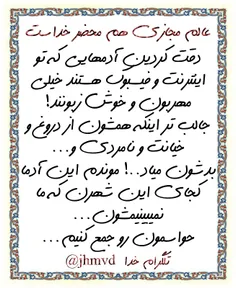 عالم مجازی هم محضر خداست
دقت کردین آدمهایی که تو
اینترنت و فیسبوک هستند خیلی
مهربون و خوش زبونند!
جالب تر اینکه همشون از دروغ و
خیانت و نامردی و...
بدشون میاد..! موندم این آدما
کجای این شهرن که ما
نمیبینیمشون...
حواسمون رو جمع کنیم...
تلگرام خدا @jhmvd